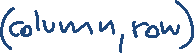 (column, row)